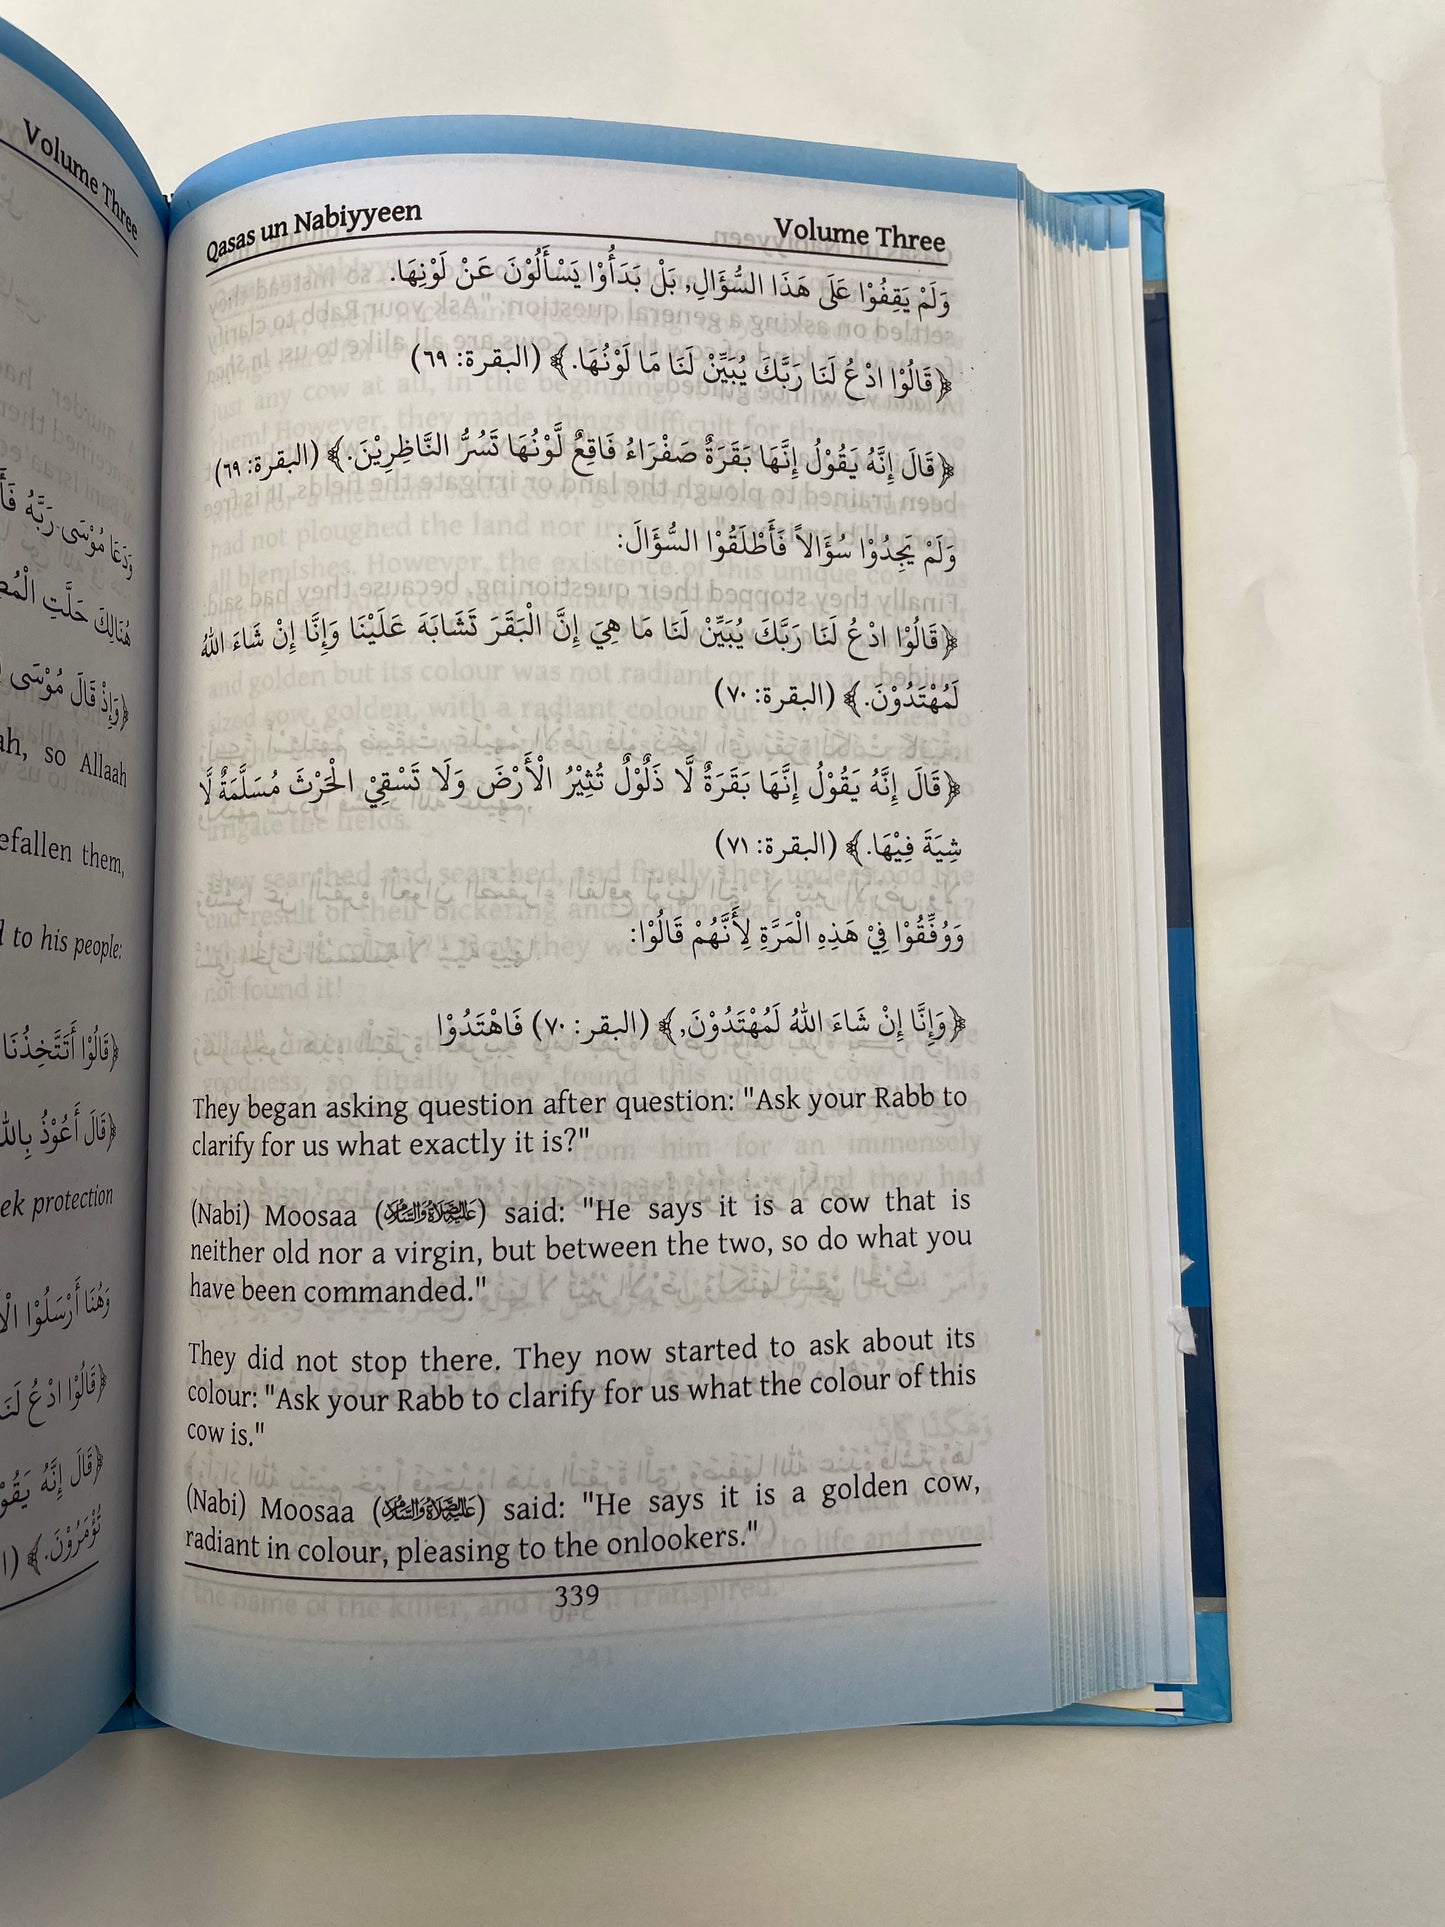 Volume Three
وَدَعَا مُوْسَى رَبَّهُ
هُنَالِكَ حَلَّتِ
﴿وَإِذْ قَالَ مُوْسَى
so Allaah
efallen them,
to his people:
﴿قَالُوْا أَتَتَّخِذُنَا
﴿قَالَ أَعُوْذُ بِاللّٰ
ek protection
وَهُنَا أَرْسَلُوْا
﴿قَالُوْا ادْعُ لَنَا
﴿قَالَ إِنَّهُ يَقُوْ
تُؤْمَرُوْنَ.﴾
Qasas un Nabiyyeen Volume Three
وَلَمْ يَقِفُوْا عَلَى هَذَا السُّؤَالِ, بَلْ بَدَأُوْا يَسْأَلُوْنَ عَنْ لَوْنِهَا.
﴿قَالُوْا ادْعُ لَنَا رَبَّكَ يُبَيِّنْ لَنَا مَا لَوْنُهَا.﴾ (البقرة: ٦٩)
﴿قَالَ إِنَّهُ يَقُوْلُ إِنَّهَا بَقَرَةٌ صَفْرَاءُ فَاقِعٌ لَّوْنُهَا تَسُرُّ النَّاظِرِيْنَ.﴾ (البقرة: ٦٩)
وَلَمْ يَجِدُوْا سُؤَالاً فَأَطْلَقُوْا السُّؤَالَ:
﴿قَالُوْا ادْعُ لَنَا رَبَّكَ يُبَيِّنْ لَنَا مَا هِيَ إِنَّ الْبَقَرَ تَشَابَهَ عَلَيْنَا وَإِنَّا إِنْ شَاءَ اللهُ
لَمُهْتَدُوْنَ.﴾ (البقرة: ٧٠)
﴿قَالَ إِنَّهُ يَقُوْلُ إِنَّهَا بَقَرَةٌ لَّا ذَلُوْلٌ تُثِيْرُ الْأَرْضَ وَلَا تَسْقِيْ الْحَرْثَ مُسَلَّمَةٌ لَّا
شِيَةَ فِيْهَا.﴾ (البقرة: ٧١)
وَوُفِّقُوْا فِيْ هَذِهِ الْمَرَّةِ لِأَنَّهُمْ قَالُوْا:
﴿وَإِنَّا إِنْ شَاءَ اللهُ لَمُهْتَدُوْنَ,﴾ (البقر: ٧٠) فَاهْتَدُوْا
They began asking question after question: "Ask your Rabb to
clarify for us what exactly it is?"
(Nabi) Moosaa (عَلَيْهِ الصَّلَاةُ وَالسَّلَامُ) said: "He says it is a cow that is
neither old nor a virgin, but between the two, so do what you
have been commanded."
They did not stop there. They now started to ask about its
colour: "Ask your Rabb to clarify for us what the colour of this
cow is."
(Nabi) Moosaa (عَلَيْهِ الصَّلَاةُ وَالسَّلَامُ) said: "He says it is a golden cow,
radiant in colour, pleasing to the onlookers."
339